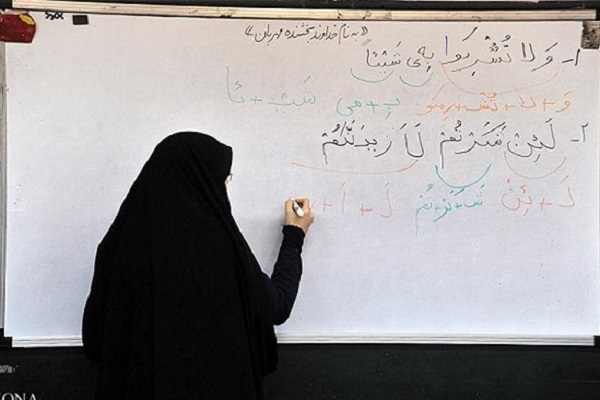 «به نام خداوند بخشنده مهربان»
۱- وَ لا تُشْرِکُوا بِهِ شَیْئاً
وَ + لا + تُشْ + رِکو بِ + هی شَیْ + ئاً
۲- لَئِنْ شَکَرْتُمْ لَأَزیدَنَّکُمْ
لَ + ئِنْ شَ + کَرْ + تُمْ لَ + أَ +
ONA